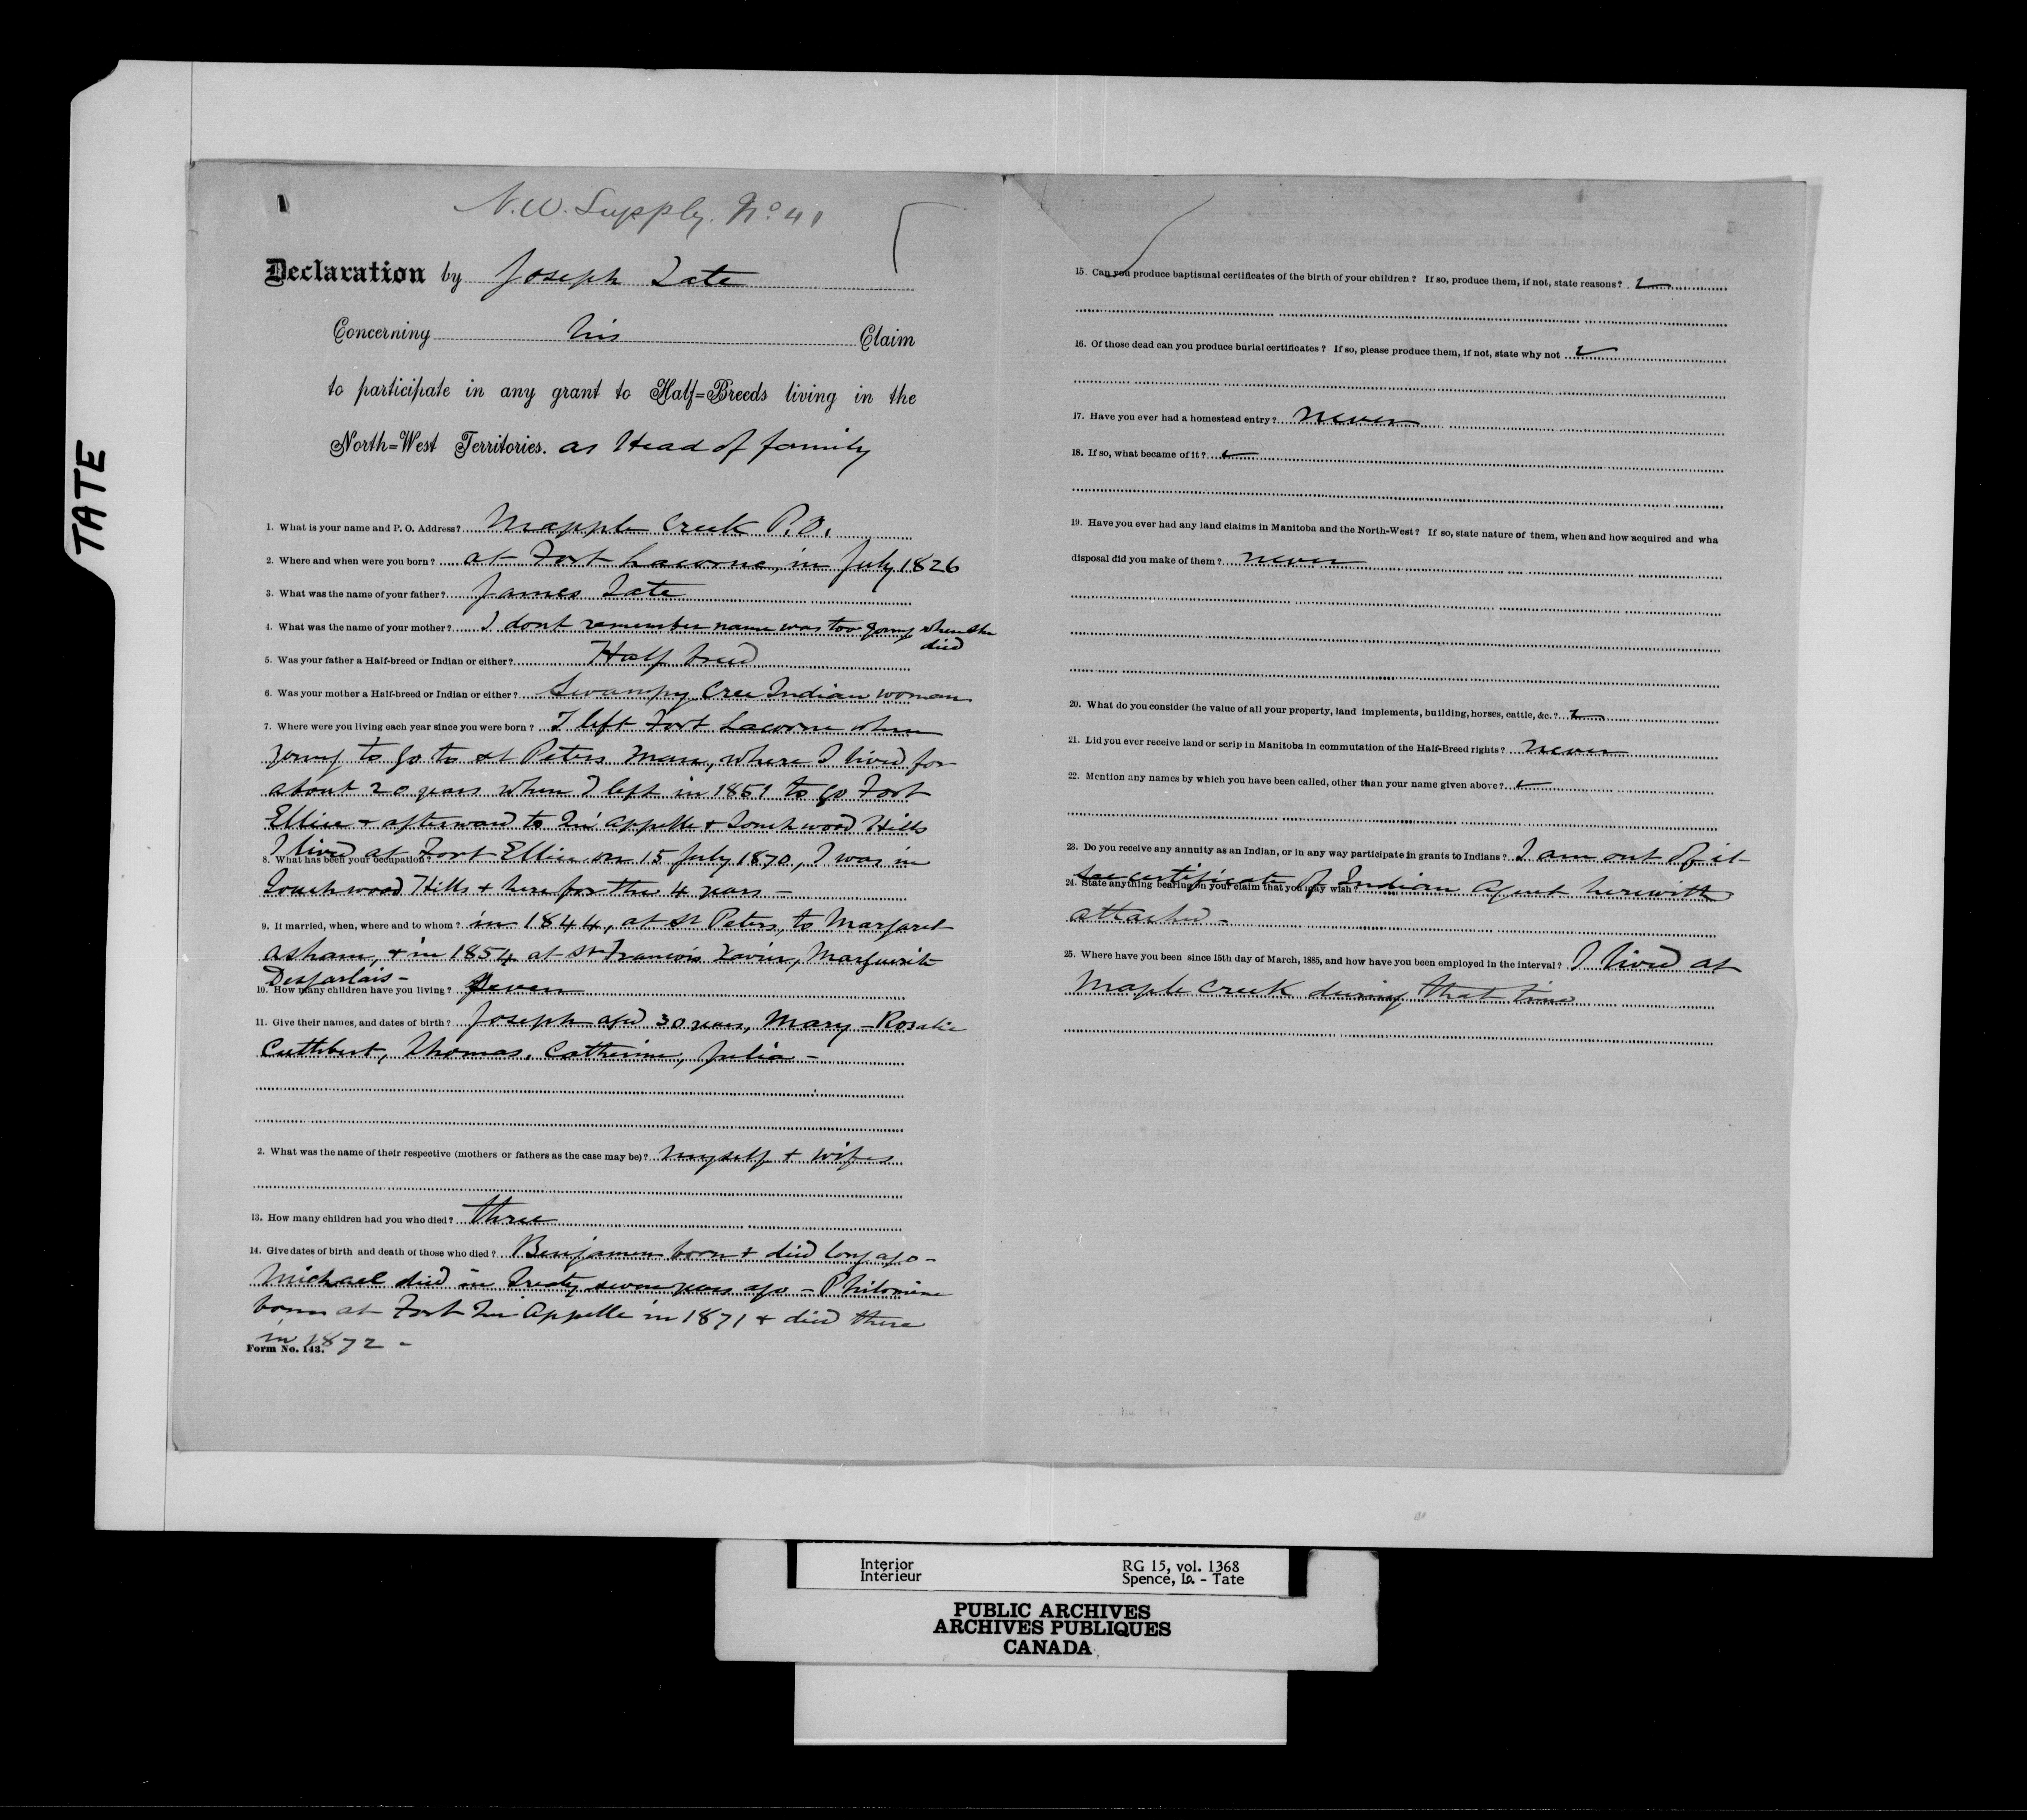 TATE
N.W. Supply. No 41
Declaration by Joseph Tate
Concerning his Claim
to participate in any grant to Half=Breeds living in the
North=West Territories. as Head of family
1. What is your name and P. O. Address? Mapple Creek P.O.
2. Where and when were you born? at Fort Lacorne, in July 1826
3. What was the name of your father? James Tate
4. What was the name of your mother? I dont remember name was too young when she
died
5. Was your father a Half-breed or Indian or either? Half breed
6. Was your mother a Half-breed or Indian or either? Swampy Cree Indian woman
7. Where were you living each year since you were born? I left Fort Lacorne when
young to go to St Peters Man, where I lived for
about 20 years when I left in 1851 to go Fort
Ellice + afterward to Qu'appelle + Touchwood Hills
I lived at Fort Ellice on 15 July 1870, I was in
8. What has been your occupation?
Touchwood Hills + here for the 4 years –
9. If married, when, where and to whom? in 1844, at St Peters, to Margaret
Asham, + in 1854 at St François Xavier, Marguerite
Desjarlais –
10. How many children have you living? Seven
11. Give their names, and dates of birth? Joseph aged 30 years, Mary – Rosalie
Cuthbert, Thomas, Catherine, Julia –
2. What was the name of their respective (mothers or fathers as the case may be)? Myself + wifes
13. How many children had you who died? three
14. Give dates of birth and death of those who died? Benjamen born + died long ago –
Michael died in treaty seven years ago – Philomene
born at Fort Qu'Appelle in 1871 + died there
in 1872 –
Form No. 143.
15. Can you produce baptismal certificates of the birth of your children? If so, produce them, if not, state reasons?
16. Of those dead can you produce burial certificates? If so, please produce them, if not, state why not
17. Have you ever had a homestead entry? never
18. If so, what became of it?
19. Have you ever had any land claims in Manitoba and the North-West? If so, state nature of them, when and how acquired and wha
disposal did you make of them? never
20. What do you consider the value of all your property, land implements, building, horses, cattle, &c.?
21. Did you ever receive land or scrip in Manitoba in commutation of the Half-Breed rights? never
22. Mention any names by which you have been called, other than your name given above?
23. Do you receive any annuity as an Indian, or in any way participate in grants to Indians? I am out of it
see certificate of Indian Agent herewith
24. State anything bearing on your claim that you may wish?
attached –
25. Where have you been since 15th day of March, 1885, and how have you been employed in the interval? I lived at
Maple Creek during that time
Interior
Intérieur
RG 15, vol. 1368
Spence, Lo. - Tate
PUBLIC ARCHIVES
ARCHIVES PUBLIQUES
CANADA